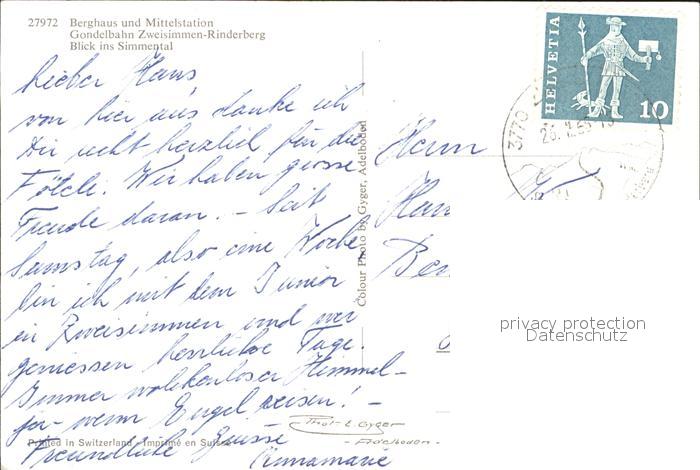 27972 Berghaus und Mittelstation
Gondelbahn Zweisimmen-Rinderberg
Blick ins Simmental
HELVETIA
10
3770
lieber Hans
von hier aus danke ich
Dir recht herzlich für die
Föteli. Wir haben grosse
Freude daran. - Seit
Samstag, also eine Woche
bin ich mit dem Junior
in Zweisimmen und wir
geniessen herrliche Tage.
Immer wolkenloser Himmel-
ja- wenn Engel reisen! -
Freundliche Grüsse
Annamarie
Herrn
Han
Ber
Colour Photo by Gyger, Adelboden
Phot. E. Gyger
- Adelboden -
Printed in Switzerland - Imprimé en Suisse
privacy protection
Datenschutz